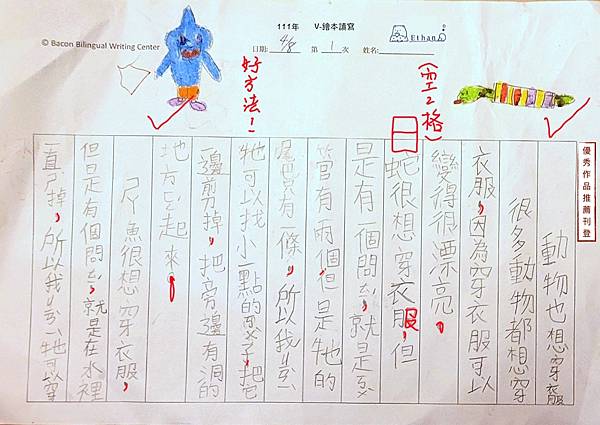 © Bacon Bilingual Writing Center
111年 V-繪本讀寫
日期: 4/8 第 1 次 姓名: Ethan
優秀作品推薦刊登
動物也想穿衣服
很多動物都想穿
衣服,因為穿衣服可以
變得很漂亮。
(空2格)
蛇很想穿衣服,但
是有一個問ㄊㄧˊ,就是ㄎㄨˋ
管有兩個,但是牠的
尾巴只有一條,所以我
好方法!
牠可以找小一點的ㄎㄨˋ子,把它
一邊剪掉,把旁邊有洞的
地方起來。
魚很想穿衣服,
但是有個問ㄊㄧˊ,就是在水裡
一直掉,所以我牠可以穿